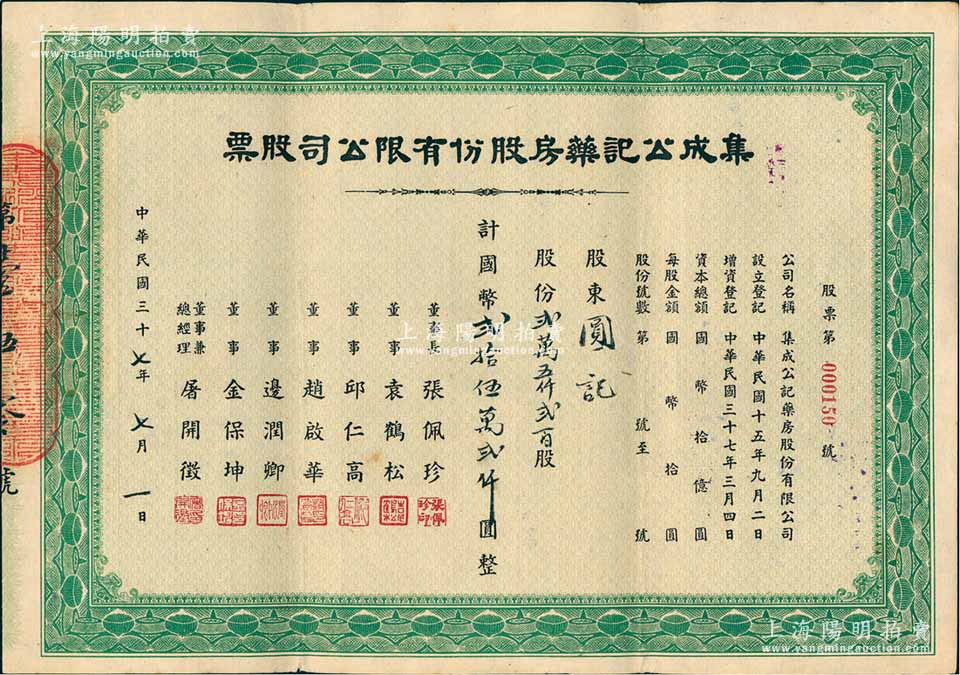 集成公記藥房股份有限公司股票
股票第 000150 號
公司名稱 集成公記藥房股份有限公司
設立登記 中華民國十五年九月二日
增資登記 中華民國三十七年三月四日
資本總額 國幣拾億圓
每股金額 國幣拾圓
股份號數 第 號至 號
股東 圓記
股份 貳萬五仟貳百股
計國幣貳拾伍萬貳仟圓整
董事長 張佩珍
董事 袁鶴松
董事 邱仁高
董事 趙啟華
董事 邊潤卿
董事 金保坤
董事兼總經理 屠開徵
中華民國三十七年七月一日
張佩珍印
第
號
上海陽明拍賣
www.yangmingauction.com
上海陽明拍賣
www.yangmingauction.com
上海陽明拍賣
www.yangmingauction.com